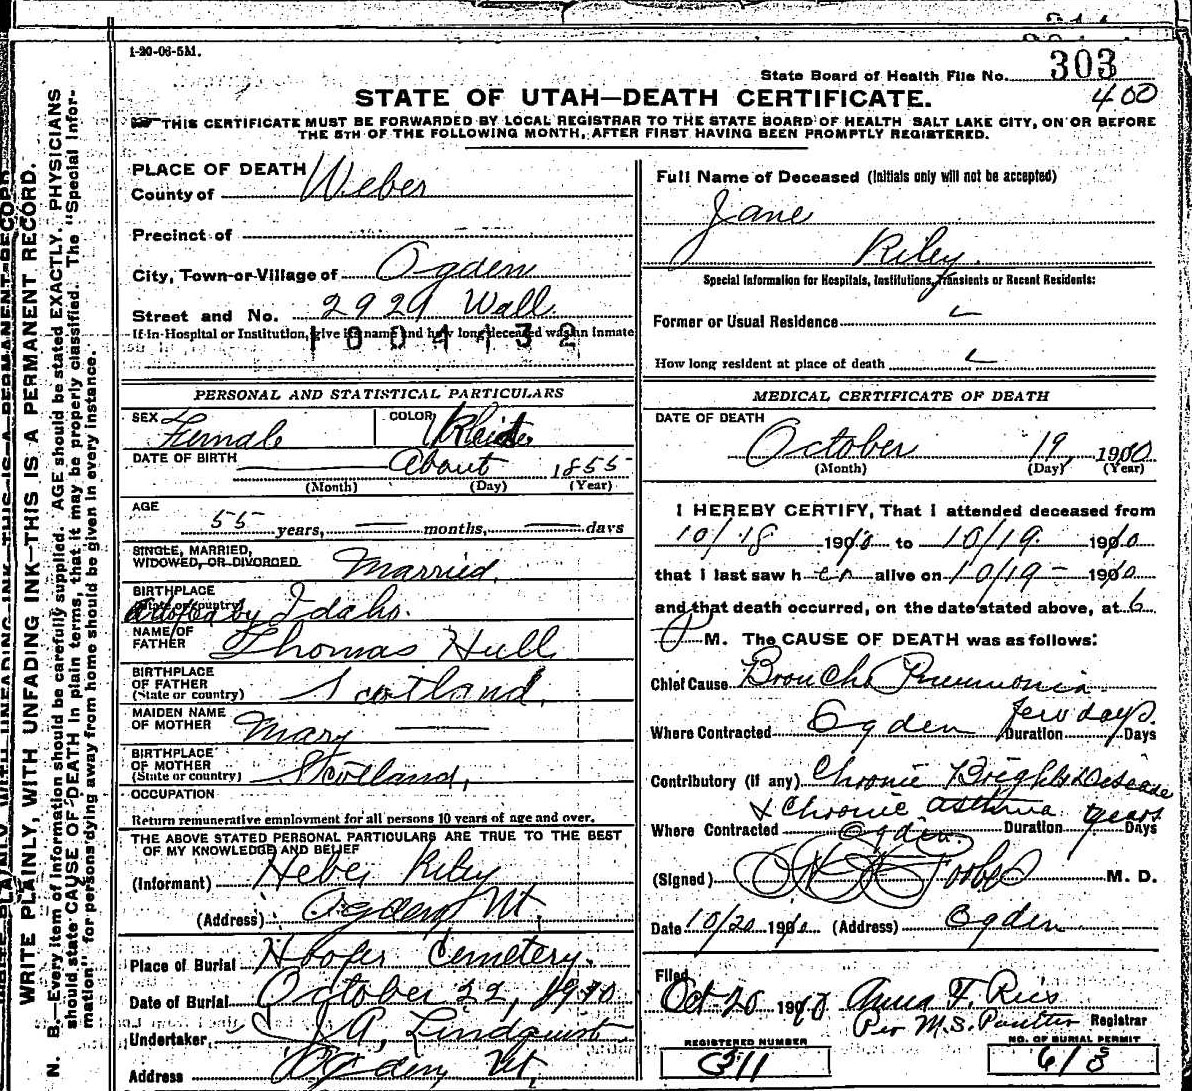 1-20-06-5M.
State Board of Health File No. 303
400
STATE OF UTAH—DEATH CERTIFICATE.
THIS CERTIFICATE MUST BE FORWARDED BY LOCAL REGISTRAR TO THE STATE BOARD OF HEALTH SALT LAKE CITY, ON OR BEFORE
THE 5TH OF THE FOLLOWING MONTH, AFTER FIRST HAVING BEEN PROMPTLY REGISTERED.
WRITE PLAINLY, WITH UNFADING INK—THIS IS A PERMANENT RECORD.
N. B.—Every item of information should be carefully supplied. AGE should be stated EXACTLY. PHYSICIANS
should state CAUSE OF DEATH in plain terms, that it may be properly classified. The "Special Infor-
mation" for persons dying away from home should be given in every instance.
PLACE OF DEATH
County of Weber
Precinct of
City, Town or Village of Ogden
Street and No. 2929 Wall
If in Hospital or Institution, give its name and how long deceased was an inmate
1004132
PERSONAL AND STATISTICAL PARTICULARS
SEX Female COLOR White
DATE OF BIRTH About 1855
(Month) (Day) (Year)
AGE
55 years, — months, — days
SINGLE, MARRIED,
WIDOWED, OR DIVORCED Married.
BIRTHPLACE
(State or country) Idaho.
NAME OF
FATHER Thomas Hull
BIRTHPLACE
OF FATHER
(State or country) Scotland,
MAIDEN NAME
OF MOTHER Mary —
BIRTHPLACE
OF MOTHER
(State or country) Scotland,
OCCUPATION
Return remunerative employment for all persons 10 years of age and over.
THE ABOVE STATED PERSONAL PARTICULARS ARE TRUE TO THE BEST
OF MY KNOWLEDGE AND BELIEF
(Informant) Heber Riley
(Address) Ogden Ut.
Place of Burial Hooper Cemetery.
Date of Burial October 22, 1910
Undertaker J. A. Lindquist
Address Ogden Ut.
Full Name of Deceased (Initials only will not be accepted)
Jane
Riley.
Special Information for Hospitals, Institutions, Transients or Recent Residents:
Former or Usual Residence
How long resident at place of death
MEDICAL CERTIFICATE OF DEATH
DATE OF DEATH
October 19, 1910
(Month) (Day) (Year)
I HEREBY CERTIFY, That I attended deceased from
10/18 1910 to 10/19. 1910
that I last saw her alive on 10/19 - 1910
and that death occurred, on the date stated above, at 6
P M. The CAUSE OF DEATH was as follows:
Chief Cause Broncho Pneumonia
Where Contracted Ogden Duration few days. Days
Contributory (if any) Chronic Brights Disease
& Chronic asthma
Where Contracted Ogden. Duration years Days
(Signed) M. D.
Date 10/20 1910 (Address) Ogden
Filed
Oct-20 1910 Anna F. Ries
Per M.S. Poulter Registrar
REGISTERED NUMBER
311
NO. OF BURIAL PERMIT
613